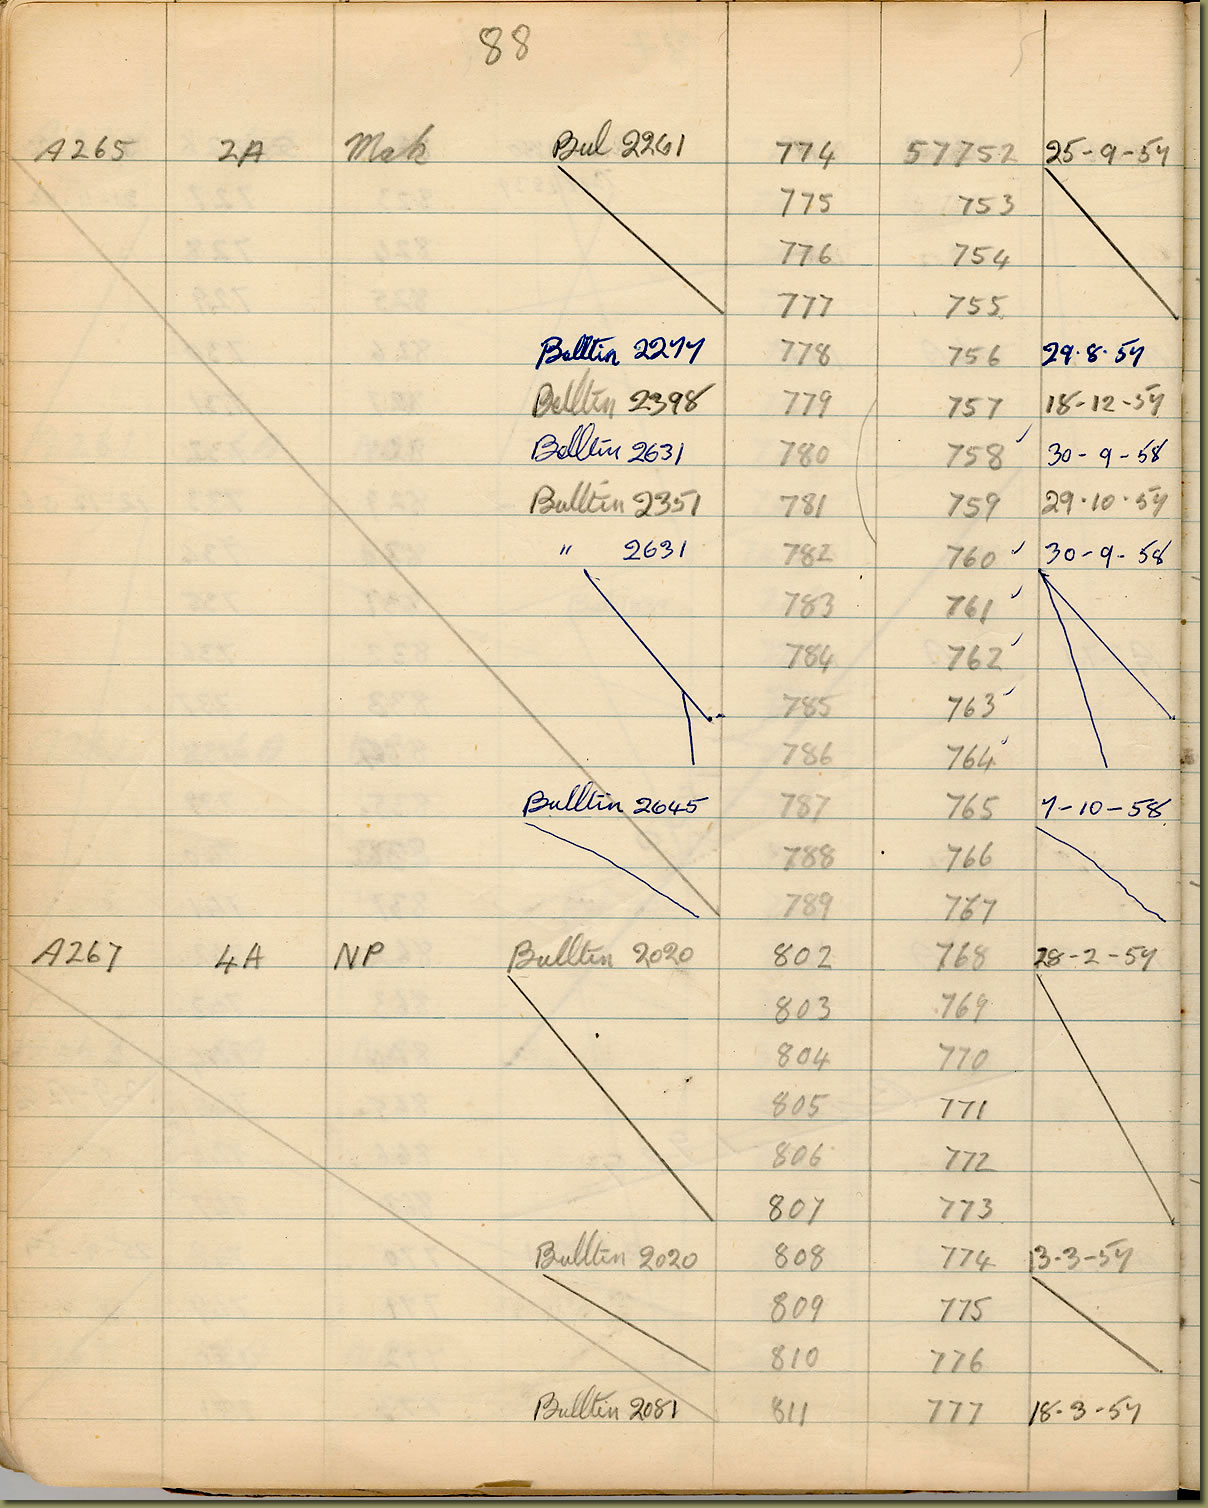 88
A265 2A Mek Bul 2261 774 57752 25-9-57
775 753
776 754
777 755
Bulltin 2277 778 756 29.8.57
Bulltin 2398 779 757 18-12-57
Bulltin 2631 780 758 ✓ 30-9-58
Bulltin 2351 781 759 29.10.57
" 2631 782 760 ✓ 30-9-58
783 761 ✓
784 762 ✓
785 763 ✓
786 764 ✓
Bulltin 2645 787 765 7-10-58
788 766
789 767
A267 4A NP Bulltin 2020 802 768 28-2-57
803 769
804 770
805 771
806 772
807 773
Bulltin 2020 808 774 13-3-57
809 775
810 776
Bulltin 2081 811 777 18-3-57